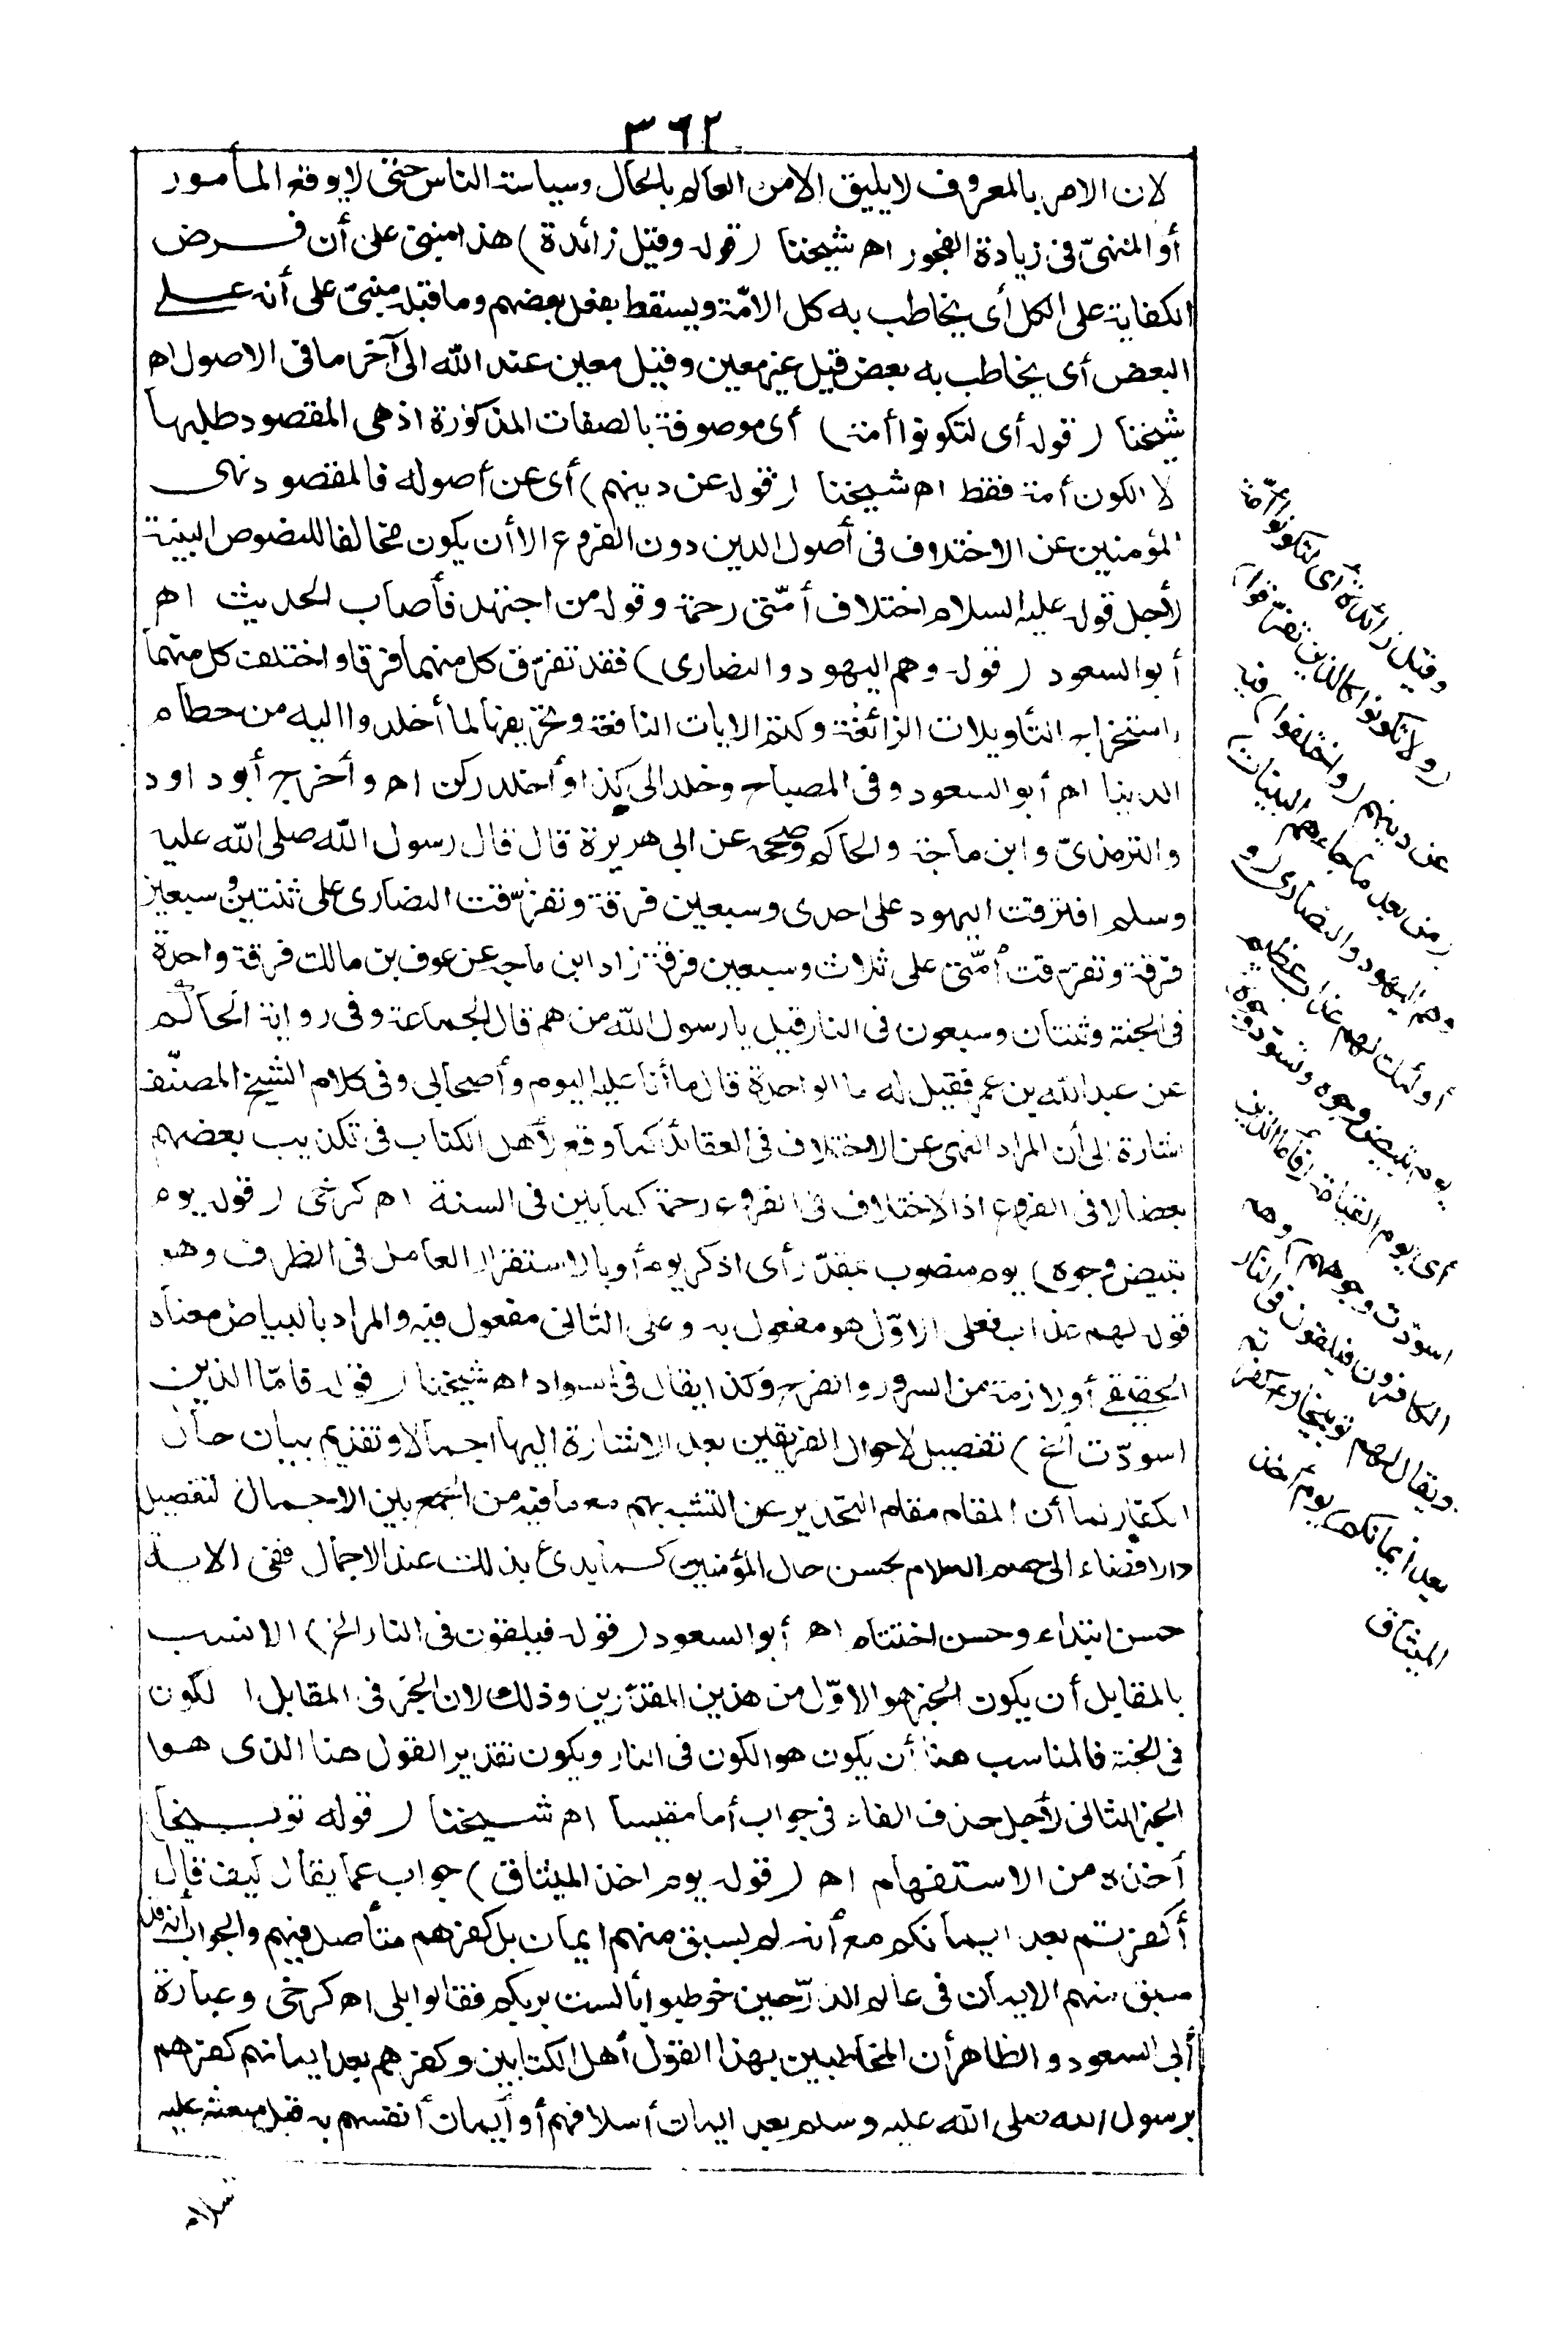 ٣٦٢
لان الامر بالمعروف لا يليق الا من العالم بالحال وسياسة الناس حتى لا يوقع المأمور
أو المنهىّ فى زيادة الفجور اه شيخنا (قوله وقيل زائدة) هذا مبنى على أن فرض
الكفاية على الكل أى يخاطب به كل الامّة ويسقط بفعل بعضهم وما قبله مبنىّ على أنه على
البعض أى يخاطب به بعض قيل غير معين وقيل معين عند الله الى آخر ما فى الاصول اه
شيخنا (قوله أى لتكونوا أمة) أى موصوفة بالصفات المذكورة اذ هى المقصود طلبها
لا الكون أمة فقط اه شيخنا (قوله عن دينهم) أى عن أصوله فالمقصود نهى
المؤمنين عن الاختلاف فى أصول الدين دون الفروع الا أن يكون مخالفا للنصوص البينة
لأجل قوله عليه السلام اختلاف أمّتى رحمة وقوله من اجتهد فأصاب الحديث اه
أبو السعود (قوله وهم اليهود والنصارى) فقد تفرّق كل منهما فرقا واختلف كل منهما
باستخراج التأويلات الزائفة وكتم الايات النافعة وتحريفها لما أخلدوا اليه من حطام
الدنيا اه أبو السعود وفى المصباح وخلد الى كذا وأخلد ركن اه وأخرج أبو داود
والترمذىّ وابن ماجة والحاكم وصححه عن ابى هريرة قال قال رسول الله صلى الله عليه
وسلم افترقت اليهود على احدى وسبعين فرقة وتفرّقت النصارى على ثنتين وسبعين
فرقة وتفرقت أمّتى على ثلاث وسبعين فرقة زاد ابن ماجه عن عوف بن مالك فرقة واحدة
فى الجنة وثنتان وسبعون فى النار قيل يا رسول الله من هم قال الجماعة وفى رواية الحاكم
عن عبد الله بن عمر فقيل له ما الواحدة قال ما أنا عليه اليوم وأصحابى وفى كلام الشيخ المصنّف
اشارة الى أن المراد النهى عن الاختلاف فى العقائد كما وقع لأهل الكتاب فى تكذيب بعضهم
بعضا لا فى الفروع اذ الاختلاف فى الفروع رحمة كما بين فى السنة اه كرخى (قوله يوم
تبيض وجوه) يوم منصوب بمقدّر أى اذكر يوم أو بالاستقرار العامل فى الظرف وهو
قوله لهم عذاب فعلى الاوّل هو مفعول به وعلى الثانى مفعول فيه والمراد بالبياض معناه
الحقيقى أو لازمه من السرور والفرح وكذا يقال فى السواد اه شيخنا (قوله فامّا الذين
اسودّت الخ) تفصيل لاحوال الفريقين بعد الاشارة اليها اجمالا وتقديم بيان حال
الكفار لما أن المقام مقام التحذير عن التشبه بهم مع ما فيه من الجمع بين الاجمال لتفصيل
والافضاء الى ختم الكلام بحسن حال المؤمنين كما بدئ بذلك عند الاجمال ففى الاية
حسن ابتداء وحسن اختتام اه أبو السعود (قوله فيلقون فى النار الخ) الانسب
بالمقابل أن يكون الخبر هو الاوّل من هذين المقدّرين وذلك لان الخبر فى المقابل الكون
فى الجنة فالمناسب هنا أن يكون هو الكون فى النار ويكون تقدير القول هنا الذى هو
الخبر الثانى لأجل حذف الفاء فى جواب أما مقيسا اه شيخنا (قوله توبيخا)
أخذه من الاستفهام اه (قوله يوم اخذ الميثاق) جواب عما يقال كيف قال
أكفرتم بعد ايمانكم مع أنه لم يسبق منهم ايمان بل كفرهم متأصل فيهم والجواب أنه قد
سبق منهم الايمان فى عالم الذرّ حين خوطبوا بألست بربكم فقالوا بلى اه كرخى وعبارة
أبى السعود والظاهر أن المخاطبين بهذا القول أهل الكتابين وكفرهم بعد ايمانهم كفرهم
برسول الله صلى الله عليه وسلم بعد ايمان أسلافهم أو ايمان أنفسهم به قبل مبعثه عليه
وقيل زائدة أى لتكونوا أمّة
(ولا تكونوا كالذين تفرّقوا)
عن دينهم (واختلفوا) فيه
(من بعد ما جاءهم البينات)
وهم اليهود والنصارى (و
أولئك لهم عذاب عظيم
يوم تبيض وجوه وتسودّ وجوه)
أى يوم القيامة (فأما الذين
اسودّت وجوههم) وهم
الكافرون فيلقون فى النار
ويقال لهم توبيخا (أكفرتم
بعد ايمانكم) يوم أخذ
الميثاق
سلام